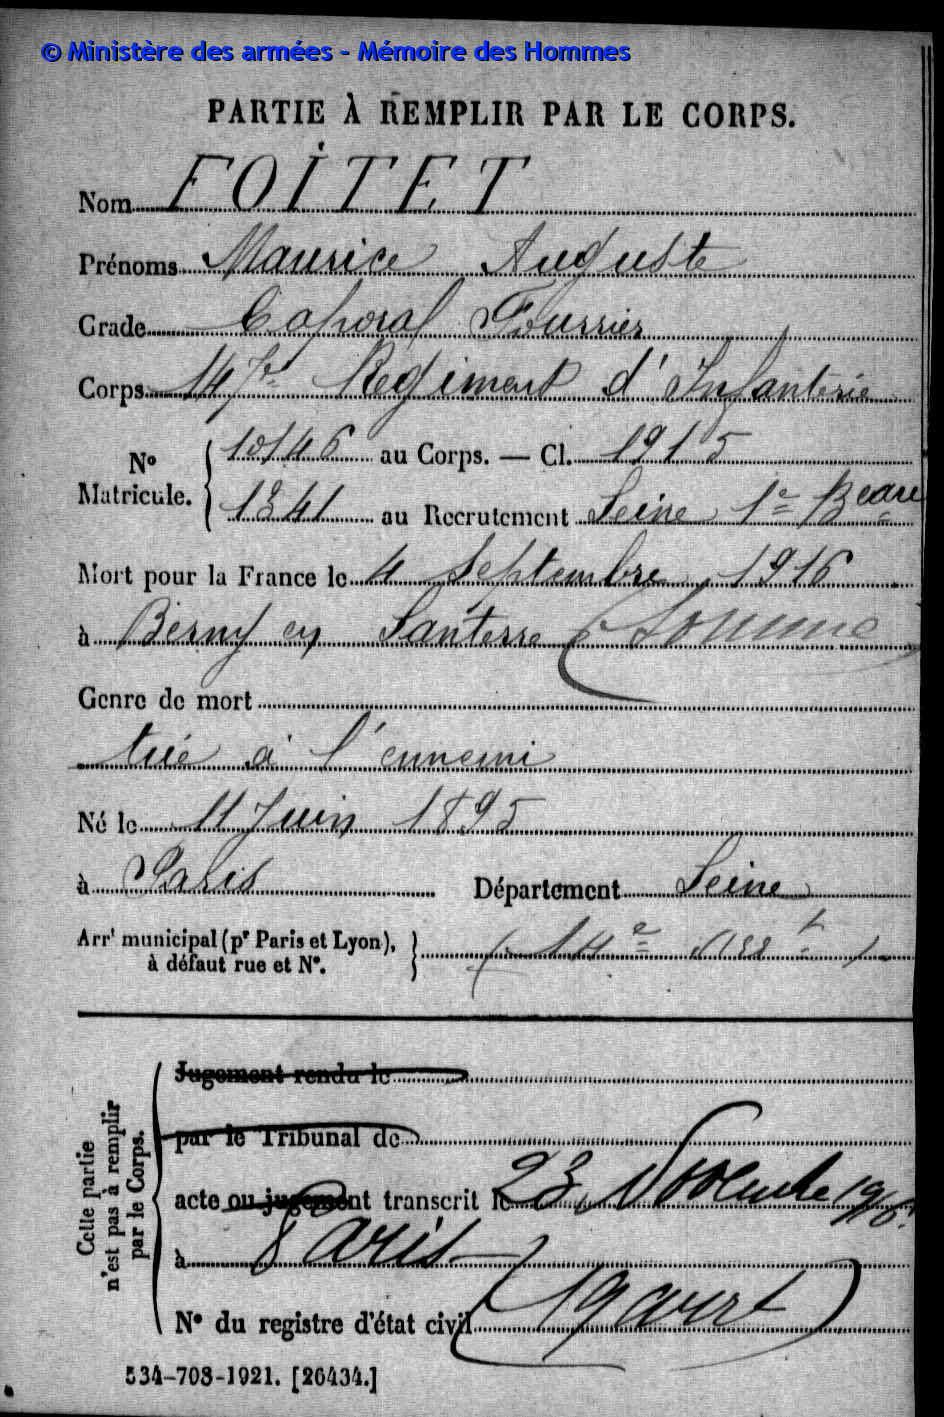 © Ministère des armées - Mémoire des Hommes
PARTIE À REMPLIR PAR LE CORPS.
Nom FOITET
Prénoms Maurice Auguste
Grade Caporal Fourrier
Corps 147e Régiment d'Infanterie
No Matricule. { 10146 au Corps. — Cl. 1915
1341 au Recrutement Seine 1er Beau
Mort pour la France le 4 Septembre 1916
à Berny en Santerre (Somme)
Genre de mort
tué à l'ennemi
Né le 11 Juin 1895
à Paris Département Seine
Arrt municipal (pr Paris et Lyon), à défaut rue et No. } (14e Arrt).
Cette partie n'est pas à remplir par le Corps.
Jugement rendu le
par le Tribunal de
acte ou jugement transcrit le 23 Novembre 1916.
à Paris
No du registre d'état civil (19 arrt)
534-708-1921. [26434.]